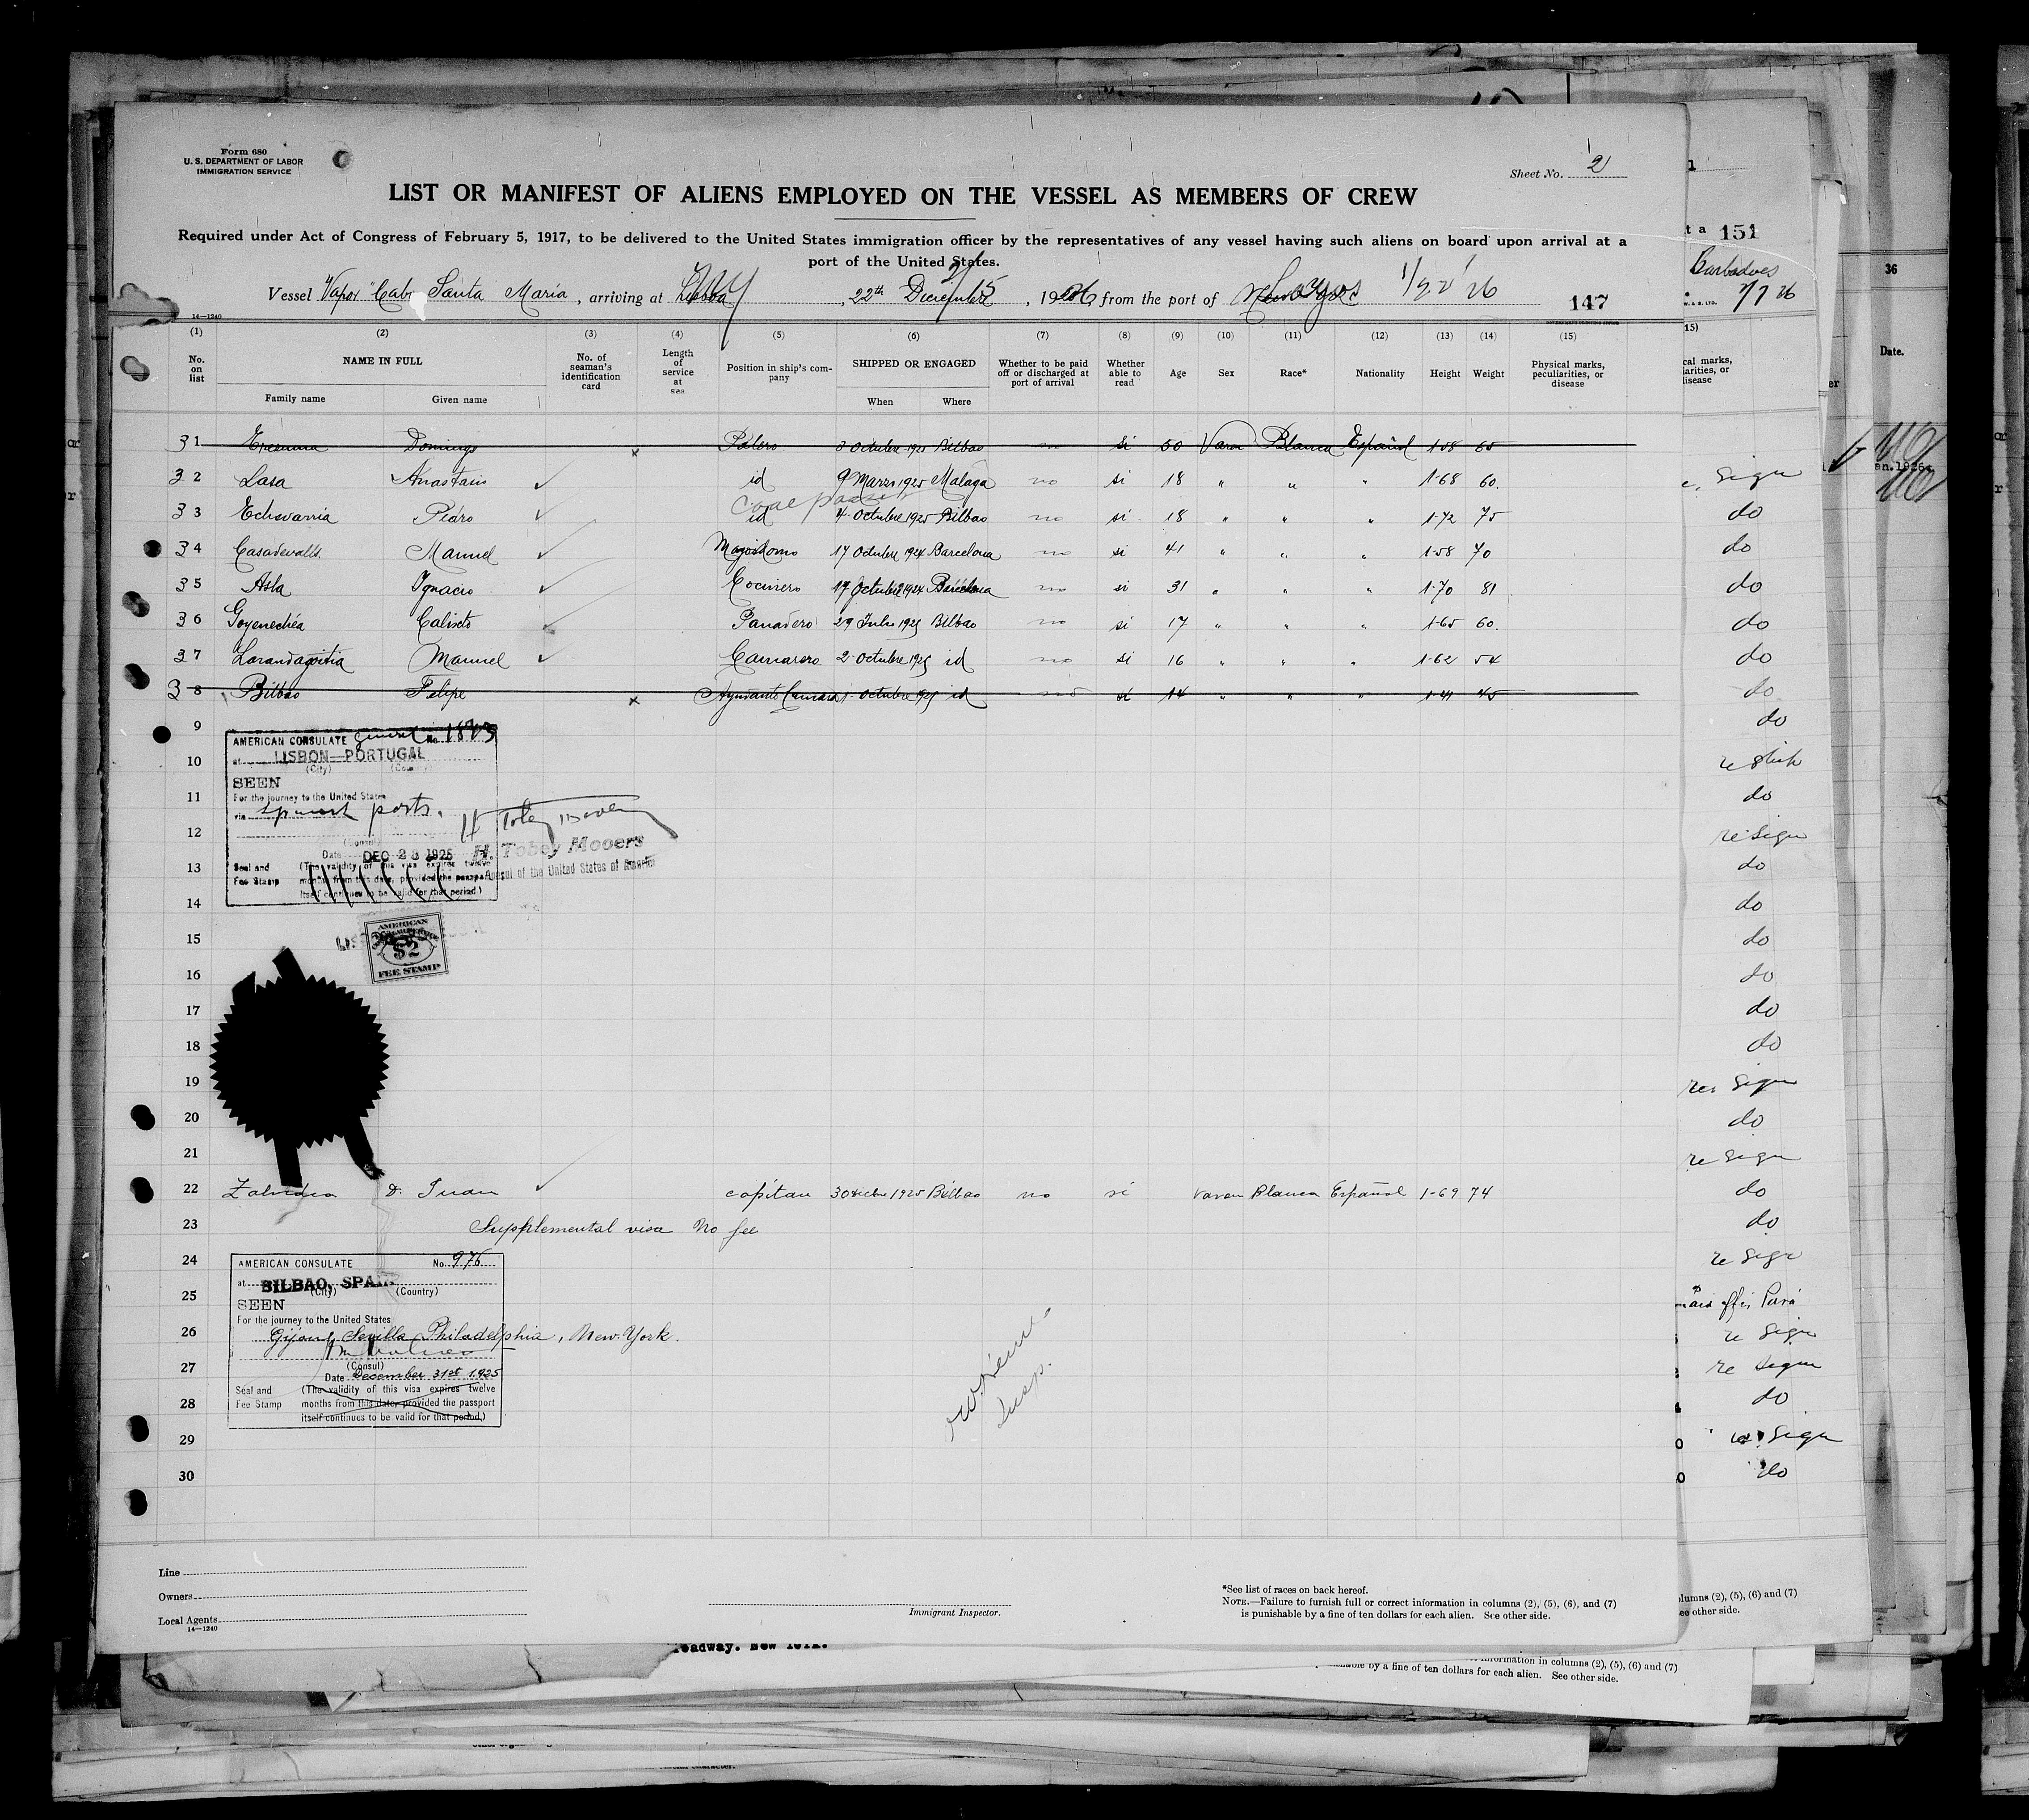 Form 680
U. S. DEPARTMENT OF LABOR
IMMIGRATION SERVICE
Sheet No. 2
LIST OR MANIFEST OF ALIENS EMPLOYED ON THE VESSEL AS MEMBERS OF CREW
Required under Act of Congress of February 5, 1917, to be delivered to the United States immigration officer by the representatives of any vessel having such aliens on board upon arrival at a
port of the United States.
Vessel Vapor "Cabo Santa María, arriving at , 22th December, 19 from the port of 1/22/26
147
14—1240
(1) (2) (3) (4) (5) (6) (7) (8) (9) (10) (11) (12) (13) (14) (15)
No. on list NAME IN FULL Family name Given name No. of seaman's identification card Length of service at sea Position in ship's company SHIPPED OR ENGAGED When Where Whether to be paid off or discharged at port of arrival Whether able to read Age Sex Race* Nationality Height Weight Physical marks, peculiarities, or disease
31 Domingo Palero Octubre 1925 Bilbao no si 50 Varon Blanca Español 1-58 65
32 Lasa Anastasio id 9 Marzo 1925 Malaga no si 18 " " " 1-68 60
coal passer
33 Echevarria Pedro id 4 Octubre 1925 Bilbao no si 18 " " " 1-72 75
34 Casadevalls Manuel Mayordomo 17 Octubre 1924 Barcelona no si 41 " " " 1-58 70
35 Asla Ignacio Cocinero 17 Octubre 1924 Barcelona no si 31 " " " 1-70 81
36 Goyenechéa Calixto Panadero 29 Julio 1925 Bilbao no si 17 " " " 1-65 60
37 Manuel Camarero 2 Octubre 1925 id no si 16 " " " 1-62 54
38 Bilbao Felipe Ayudante Camara Octubre 1925 id no si 14 " " " 1-41 45
9
AMERICAN CONSULATE General No. 1873
10
at LISBON—PORTUGAL
(City) (Country)
SEEN
11
For the journey to the United States
via Spanish ports.
12
(Consul)
H. Tobey Mooers
Date DEC 23 1925
Consul of the United States of America
13
Seal and Fee Stamp
(The validity of this visa expires twelve
months from this date, provided the passport
itself continues to be valid for that period.)
14
15
AMERICAN
$2
FEE STAMP
16
17
18
19
20
21
22 D. Juan capitan 30 1925 Bilbao no si Varon Blanca Español 1-69 74
23 Supplemental visa No fee
24
AMERICAN CONSULATE No. 976
at BILBAO, SPAIN
25
(City) (Country)
SEEN
For the journey to the United States
26
Gijon, Sevilla, Philadelphia, New-York.
27
(Consul)
Date December 31st 1925
Seal and Fee Stamp
28
(The validity of this visa expires twelve
months from this date, provided the passport
itself continues to be valid for that period.)
29
30
Insp.
Line
Owners
Local Agents
14—1240
Immigrant Inspector.
*See list of races on back hereof.
NOTE.—Failure to furnish full or correct information in columns (2), (5), (6), and (7)
is punishable by a fine of ten dollars for each alien. See other side.
151
Barbadoes
7/7 26
36
Date.
sign
do
do
do
do
do
do
do
re ship
do
re sign
do
do
do
do
do
do
re sign
do
re sign
do
do
re sign
Para
re sign
re sign
do
sign
do
columns (2), (5), (6) and (7)
see other side.
Broadway. New York.
information in columns (2), (5), (6) and (7)
by a fine of ten dollars for each alien. See other side.